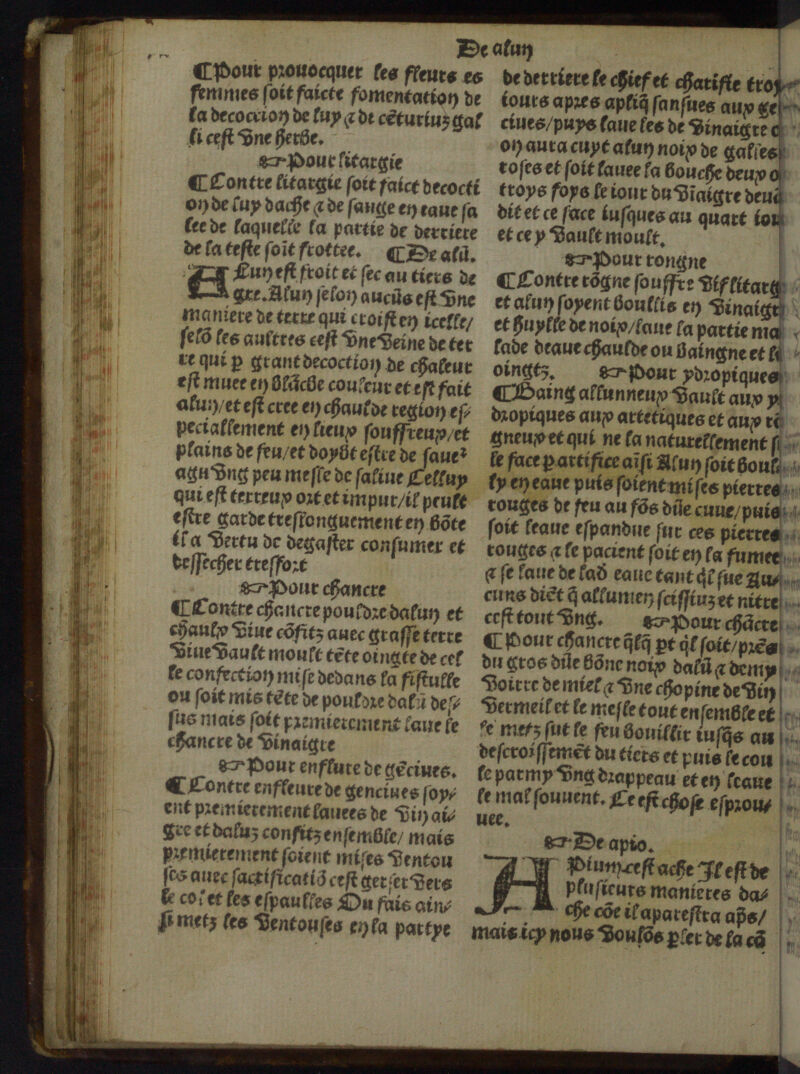 De alun
¶Pour prouocquer les fleurs es
femmes soit faicte fomentation de
la decoction de luy ⁊ de cẽturiuz gal
li cest vne herbe.
☞Pour litargie
¶Contre litargie soit faict decocti
on de luy dache ⁊ de sauge en eaue sa
lee de laquelle la partie de derriere
de la teste soit frottee. ¶De alũ.
ALun est froit et sec au tiers de
gre. Alun selon aucũs est vne
maniere de terre qui croist en icelle/
selõ les aultres cest vne veine de ter
re qui p grant decoction de chaleur
est muee en blãche couleur et est fait
alun/et est cree en chaulde region es⸗
peciallement en lieux souffreux/et
plains de feu/et doybt estre de saueᷣ
agu vng peu mesle de saline Celluy
qui est terreux ort et impur/il peult
estre garde treslonguement en bõte
il a vertu de degaster consumer et
dessecher tresfort
☞Pour chancre
¶Contre chancre pouldre dalun et
chaulx viue cõfitz auec grasse terre
viue vault moult tẽte oingte de cel
le confection mise dedans la fistulle
ou soit mis tẽte de pouldre dalũ des⸗
sus mais soit premierement laue le
chancre de vinaigre
☞Pour enflure de gẽciues.
¶Contre enfleure de genciues soy⸗
ent premierement lauees de vin ai⸗
gre et daluz confitz ensemble/ mais
premierement soient mises ventou
ses auec sacrificatiõ cest gerser vers
le col et les espaulles Ou fais ain⸗
si metz les ventouses en la partye
de derriere le chief et charifie troy
iours apres apliq̃ sansues aux
ciues/puys laue les de vinaigre
on aura cuyt alun noix de galles
roses et soit lauee la bouche deux
troys foys le iour du vĩaigre
dit et ce face iusques au quart
et ce y vault moult.
☞Pour rongne
¶Contre rõgne souffre vif litarg
et alun soyent boullis en vinaigr
et huylle de noix/laue la partie ma
lade deaue chaulde ou baingne et
oingtz. ☞Pour ydropiques
¶Baing allunneux vault aux y
dropiques aux artetiques et aux
gneux et qui ne la naturellement
le face p artifice aĩsi Alun soit boul
ly en eaue puis soient mises pierres
rouges de feu au fõs dũe cuue/puis
soit leaue espandue sur ces pierres
rouges ⁊ le pacient soit en la fumee
⁊ se laue de lad eaue tant q̃l sue Au⸗
cuns diẽt q̃ allumen scissiuz et nitre
cest tout vng. ☞Pour chãcre
¶Pour chancre q̃lq̃ pt q̃l soit/prẽs
du gros dũe bõne noix dalũ ⁊ demy
voirre de miel ⁊ vne chopine de vin
vermeil et le mesle tout ensemble et
le metz sur le feu bouillir iusq̃s au
descroissemẽt du tiers et puis le cou
le parmy vng drappeau et en leaue
le mal souuent. Ce est chose esprou⸗
uee.
☞De apio.
APium cest ache Il est de
plusieurs manieres da⸗
che cõe il aparestra ap̃s/
mais icy nous voulõs pler de la cõ